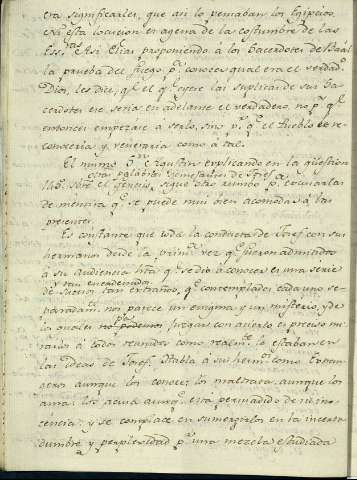 era significarles, que asi lo pensaban los Egipcios.
Ni esta locucion es agena de la costumbre de las
Ess.ras Asi Elias proponiendo à los Sacerdotes de Baal
la prueba del fuego, p.a conocer qual era el verdad.o
Dios, les dice, q.e el q.e oyere las suplicas de sus Sa-
cerdotes ese sería en adelante el verdadero, no p.r q.e
entonces empezare à serlo, sino p.r q.e el Pueblo le re-
conocería, y veneraría como à tal.
El mismo S.n Agustin explicando en la question
otras palabras semejantes de Josef
sobre el Genesis, sigue este rumbo p.a escusarlas
de mentira q.e se puede mui bien acomodar à las
presentes.
Es constante, que toda la conducta de Josef con sus
hermanos desde la prim.a vez q.e fueron admitidos
à su audiencia h.ta q.e se dió à conocer es una serie
y tan encadenada
de sucesos tan extraños, q.e contemplados cada uno se-
paradam.te nos parece un enigma y un misterio, y de
la quales no podemos juzgar con acierto es preciso mi-
rarlos à todos reunidos como realm.te lo estaban en
las ideas de Josef. Habla à sus herm.os como Extran-
gero aunque los conoce; los maltrata, aunque los
ama; los acusa aunq.e está persuadido de su ino-
cencia; y se complace en sumergirlos en la incerti-
dumbre y perplexidad p.r una mezcla estudiada